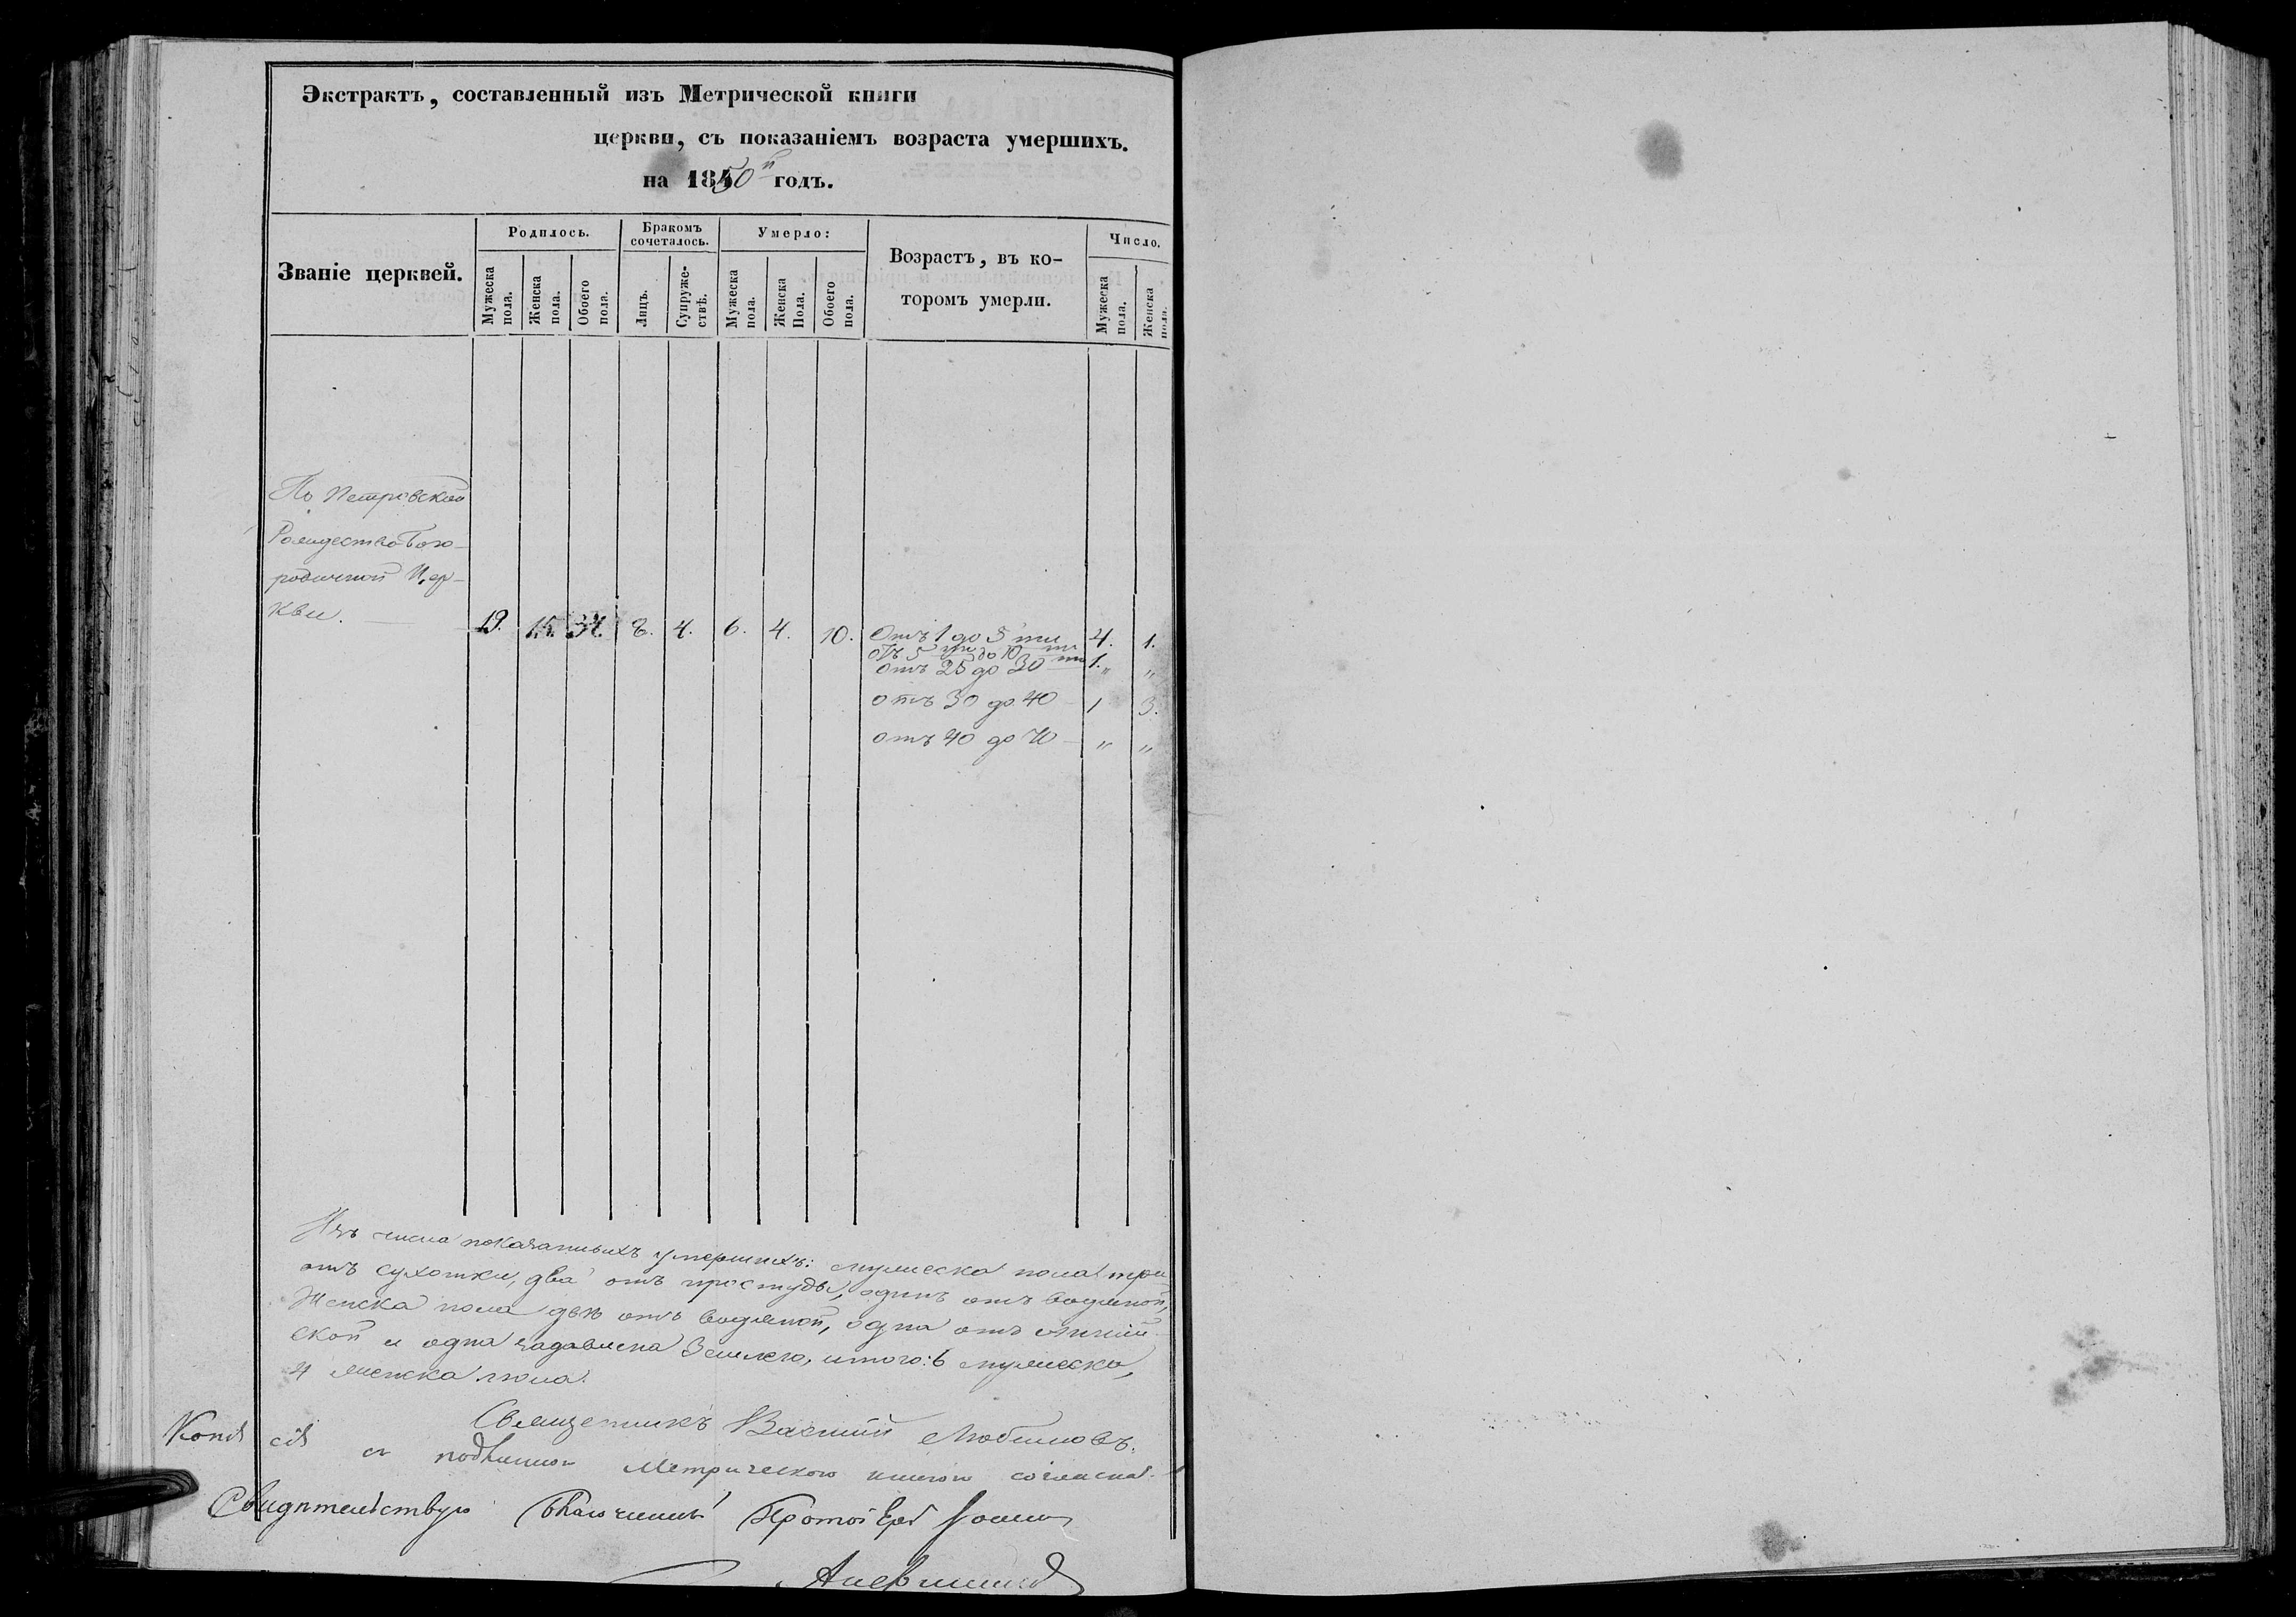 Экстрактъ, составленный изъ Метрической книги
церкви, съ показаніемъ возраста умершихъ.
на 1850й годъ.
Званіе церквей.
Родилось.
Бракомъ сочеталось.
Умерло:
Возрастъ, въ ко-
торомъ умерли.
Число.
Мужеска пола.
Женска пола.
Обоего пола.
Лицъ.
Супруже-ствъ.
Мужеска пола.
Женска Пола.
Обоего пола.
Мужеска пола.
Женска пола.
По Петровской
Рождество Бого-
родичной Цер-
кви.
19. 15. 34. 8. 4. 6. 4. 10. Отъ 1 до 5 ти 4. 1.
отъ 5 ти до 10 ти 1.
отъ 25 до 30 ти „ „
отъ 30 до 40 1 3.
отъ 40 до 70 „ „
Изъ числа показанныхъ умершихъ: мужеска пола три
отъ сухотки, два отъ простуды, одинъ отъ водяной,
Женска пола двѣ отъ водяной, одна отъ
ской и одна задавлена Землею, итого: 6 мужеска,
4 женска пола.
Священникъ Любимовъ.
съ подлинною Метрическою книгою согласна.
Свидѣтельствую Благочинный Протоіерей Іоаннъ